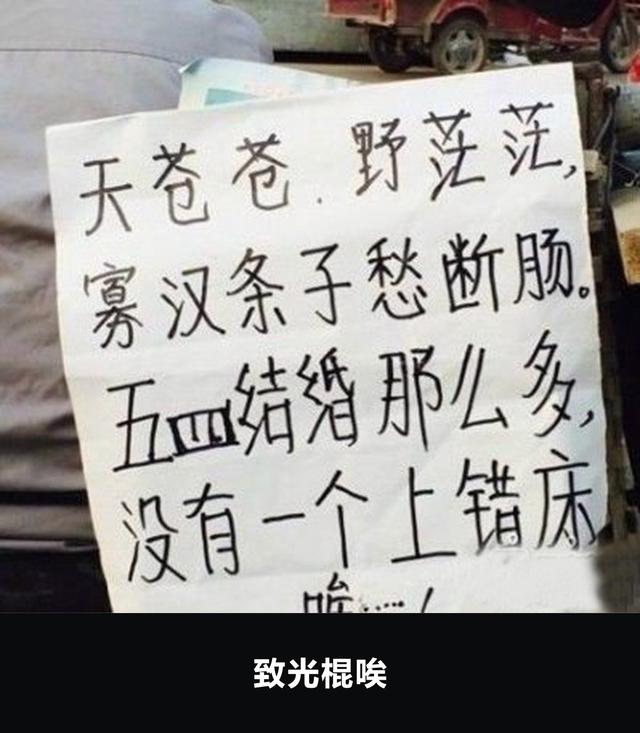 天苍苍.野茫茫,
寡汉条子愁断肠。
五四结婚那么多,
没有一个上错床
唉……!
致光棍唉